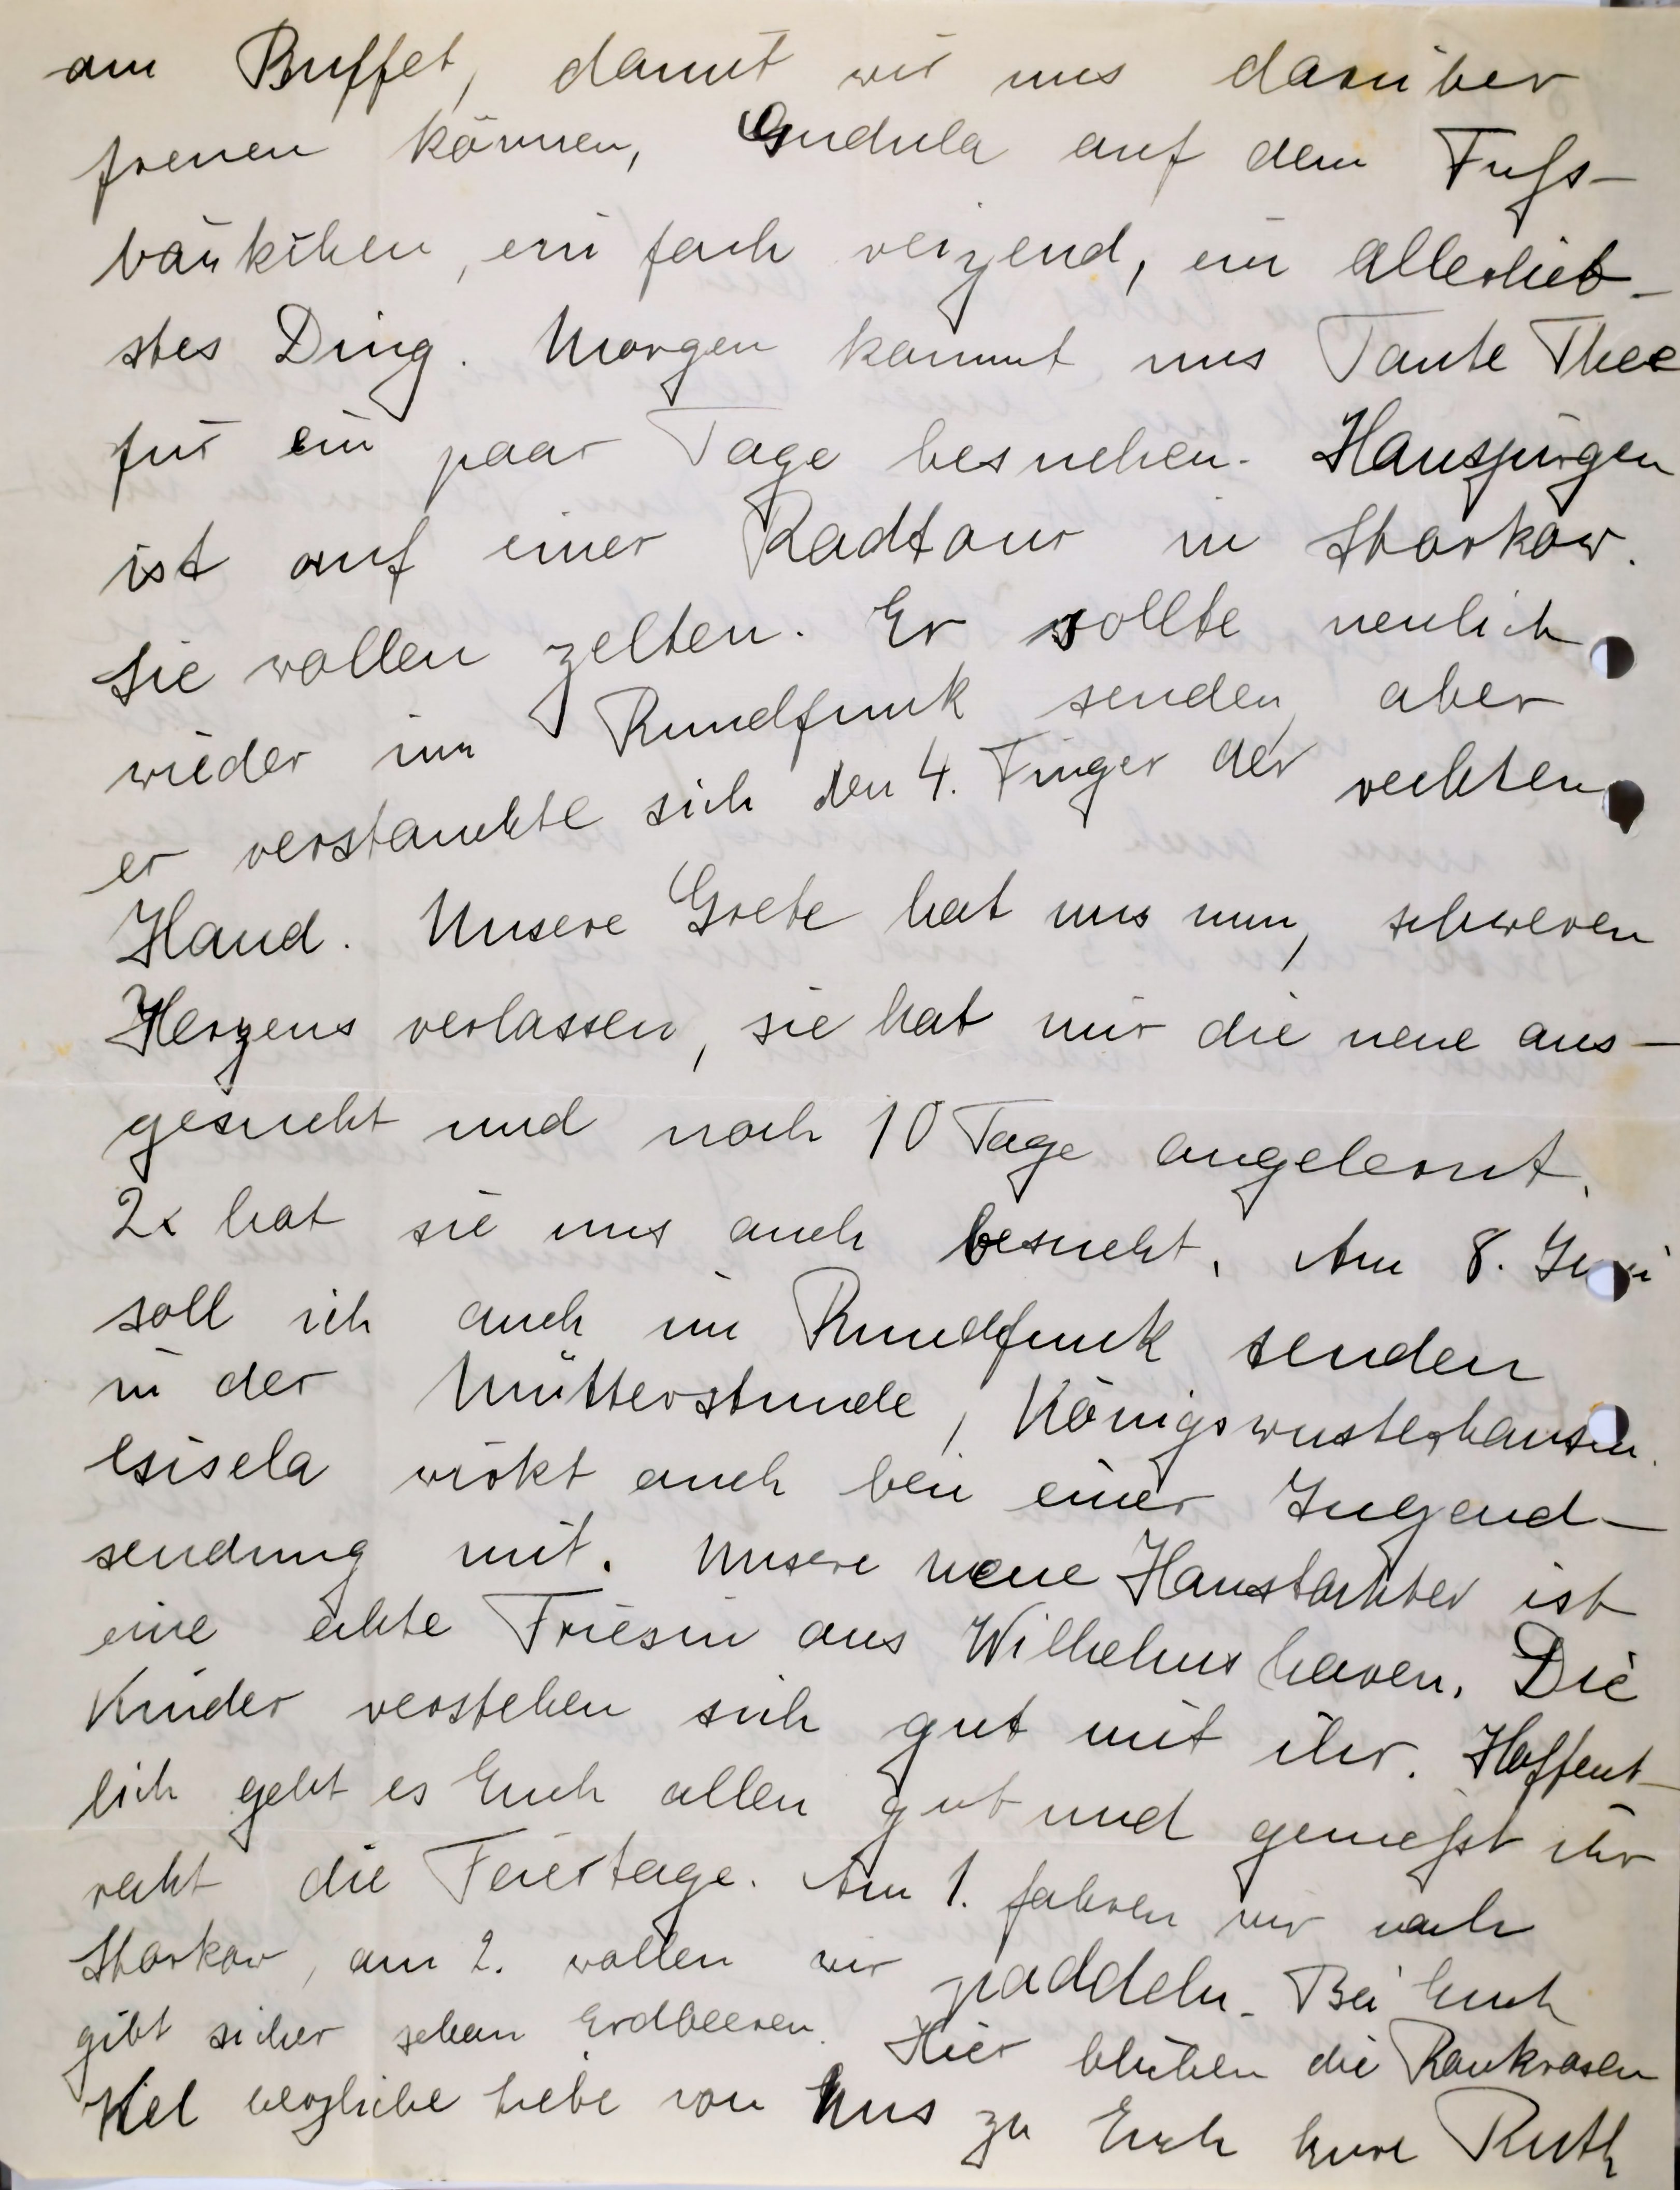 am Buffet, damit wir uns darüber
freuen können, Gudula auf dem Fuß-
bänkchen, einfach reizend, ein allerlieb-
stes Ding. Morgen kommt uns Tante Thee
für ein paar Tage besuchen. Hansjürgen
ist auf einer Radtour in Storkow.
Sie wollen zelten. Er sollte neulich
wieder im Rundfunk senden, aber
er verstauchte sich den 4. Finger der rechten
Hand. Unsere Grete hat uns nun, schweren
Herzens verlassen, sie hat mir die neue aus-
gesucht und noch 10 Tage angelernt.
2x hat sie uns auch besucht. Am 8. Juni
soll ich auch im Rundfunk senden
in der Mütterstunde, Königswusterhausen.
Gisela wirkt auch bei einer Jugend-
sendung mit. Unsere neue Haustochter ist
eine echte Friesin aus Wilhelmshaven. Die
Kinder verstehen sich gut mit ihr. Hoffent-
lich geht es Euch allen gut und genießt ihr
recht die Feiertage. Am 1. fahren wir nach
Storkow, am 2. wollen wir paddeln. Bei Euch
gibt sicher schon Erdbeeren. Hier blühen die Rankrosen
Viel herzliche Liebe von Uns zu Euch Eure Ruth